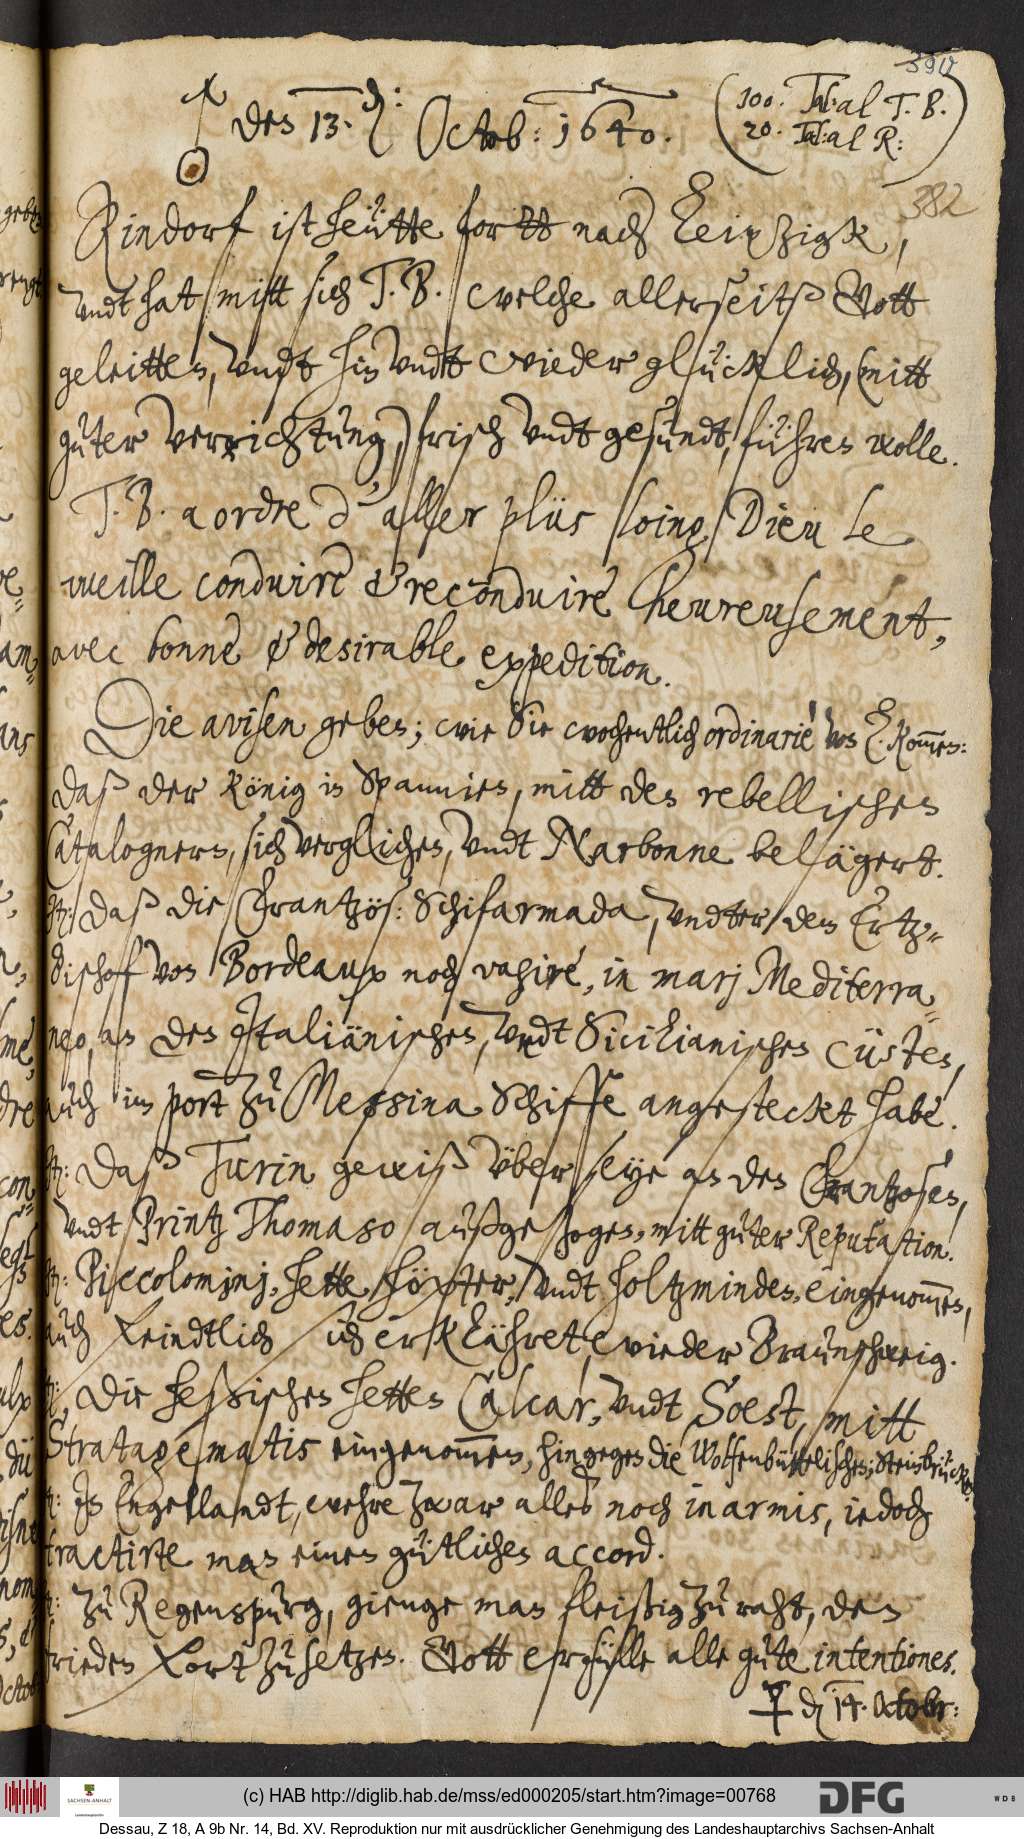 390
♂ den 13. ♃: Octob: 1640. (100. Tal: al T. B.
20. Tal: al R:)
382
Rindorf ist heütte fortt nach Leipzigk,
undt hat mitt sich T. B. welche allerseitß Gott
geleitten, undt hin undt wieder glücklich, (mitt
guter verrichtung,) frisch undt gesundt, führen wolle.
T. B. a ordre d'aller plüs loing, Dieu le
vueille conduire & reconduire heureusement,
avec bonne & desirable expedition.
Die avisen geben; wie Sie wochentlich ordinarie von L. kommen:
daß der König in Spannien, mitt den rebellischen
Catalognern, sich verglichen, undt Narbonne belägert.
It: daß die Frantzös: Schifarmada, undter dem Ertz-
bischof von Bordeaux noch vagire, in marj Mediterra-
neo, an den Italiänischen, undt Sicilianischen cüsten,
auch im port zu Messina Schiffe angesteckt habe.
It: daß Turin gewiß über seye an den Frantzosen,
undt Printz Thomaso außgezogen, mitt guter Reputation.
It: Piccolominj, hette Höxter, undt Holtzminden, eingenommen,
auch feindtlich sich erklähret, wieder Braunschweig.
It: Die heßischen hetten Calcar, undt Soest, mitt
Stratagematis eingenommen, hingegen die Wolfenbüttelischen, Steinbrücken.
It: In Engellandt, wehre zwar alles noch in armis, iedoch
tractirte man einen gütlichen accord.
It: Zu Regenspurg, gienge man fleißig zu raht, den
frieden fortzusetzen. Gott erfülle alle gute intentiones.
den 14. Octobr:
(c) HAB http://diglib.hab.de/mss/ed000205/start.htm?image=00768
SACHSEN-ANHALT
DFG
WDB
Dessau, Z 18, A 9b Nr. 14, Bd. XV. Reproduktion nur mit ausdrücklicher Genehmigung des Landeshauptarchivs Sachsen-Anhalt